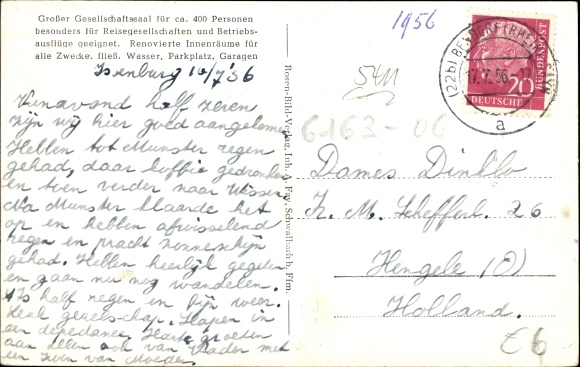 Großer Gesellschaftssaal für ca. 400 Personen
besonders für Reisegesellschaften und Betriebs-
ausflüge geeignet. Renovierte Innenräume für
alle Zwecke. fließ. Wasser, Parkplatz, Garagen
Isenburg 16/7 '56
Vanavond half zeven
zijn wij hier goed aangekomen
Hebben tot Munster regen
gehad, daar koffie gedronken
en toen verder naar
Na Munster klaarde het
op en hebben afwisselend
regen en pracht zonneschijn
gehad. Hebben heerlijk gegeten
en gaan nu nog wandelen.
Is half negen en fijn weer.
Heel gezelschap. Slapen in
een dependance. Hart. groeten
aan allen ook van Vader met
een zoen van Moeder
Rosen-Bild-Verlag, Inh. A. Fay, Schwalbach b. Ffm.
1956
5411
6163-06
(22b) BENDORF (RHEIN)
17.7.56-17
a
20
DEUTSCHE
BUNDESPOST
Dames Dinkla
K. M. Scheffert. 26
Hengelo (O)
Holland.
£6